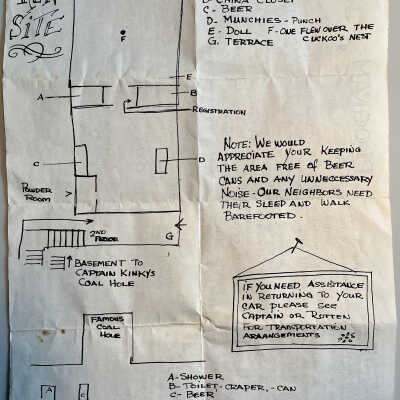 SITE
B- CHINA CLOSET
C- BEER
D- MUNCHIES - PUNCH
E- DOLL F- ONE FLEW OVER THE
CUCKOO'S NEST
G. TERRACE
F
E
A
B
REGISTRATION
C
D
NOTE: WE WOULD
APPRECIATE YOUR KEEPING
THE AREA FREE OF BEER
CANS AND ANY UNNECCESSARY
NOISE - OUR NEIGHBORS NEED
THEIR SLEEP AND WALK
BAREFOOTED.
POWDER
ROOM
2ND
FLOOR
G
BASEMENT TO
CAPTAIN KINKY'S
COAL HOLE
IF YOU NEED ASSISTANCE
IN RETURNING TO YOUR
CAR PLEASE SEE
CAPTAIN OR ROTTEN
FOR TRANSPORTATION
ARRANGEMENTS
FAMOUS
COAL
HOLE
A- SHOWER
B- TOILET-CRAPER,-CAN
C- BEER
A
C